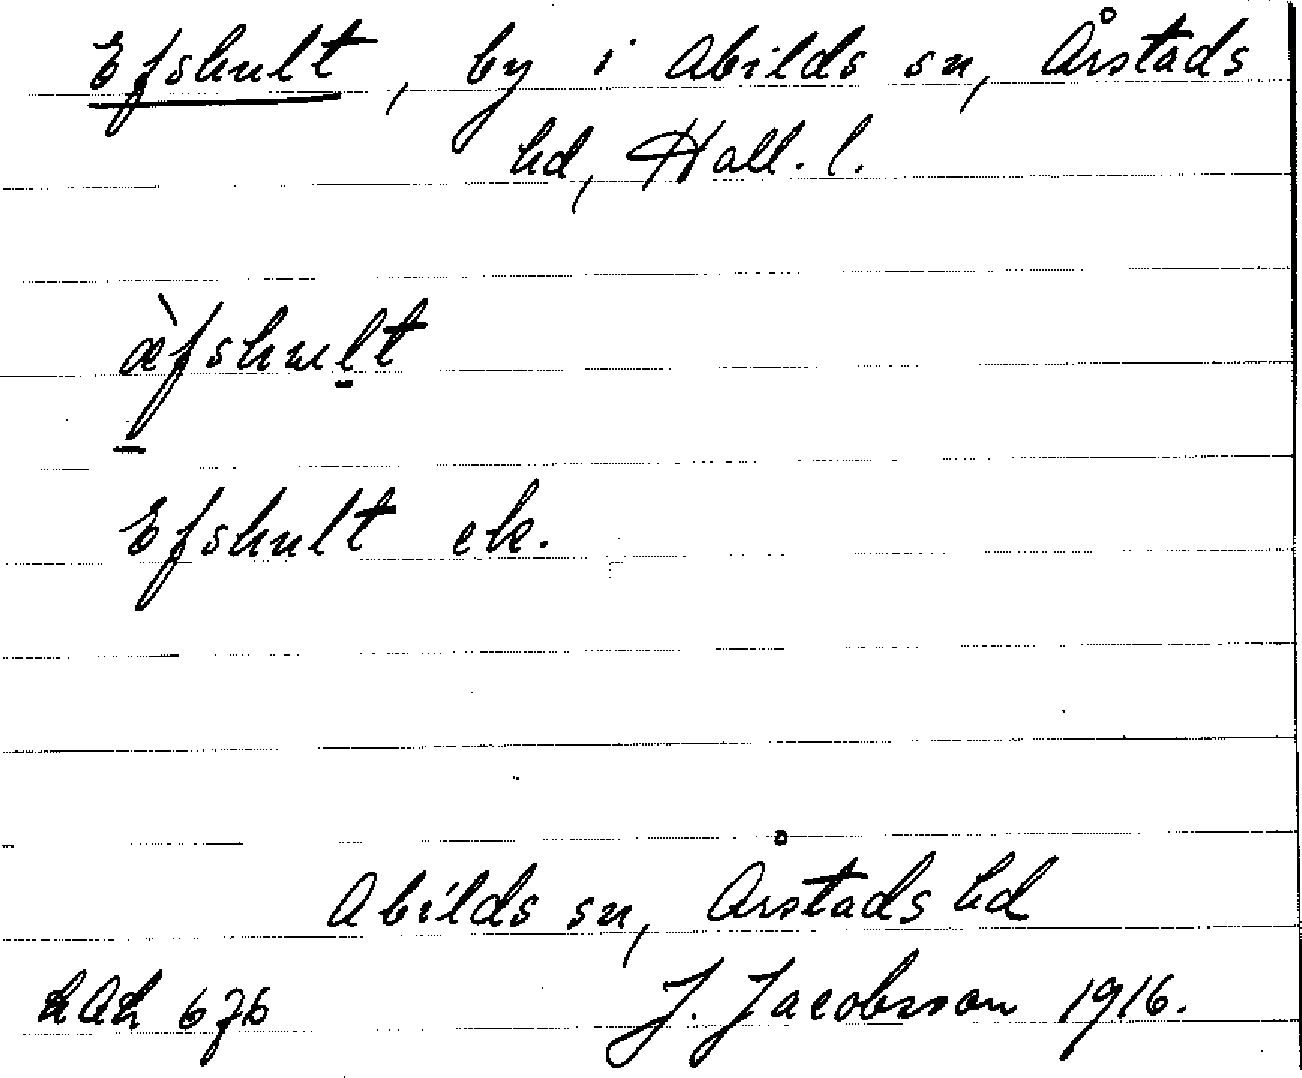 Efskult, by i Abilds sn, Årstads
hd, Hall. l.
æ̀fskult
Efskult ek.
Abilds sn, Årstads hd
J. Jacobsson 1916.